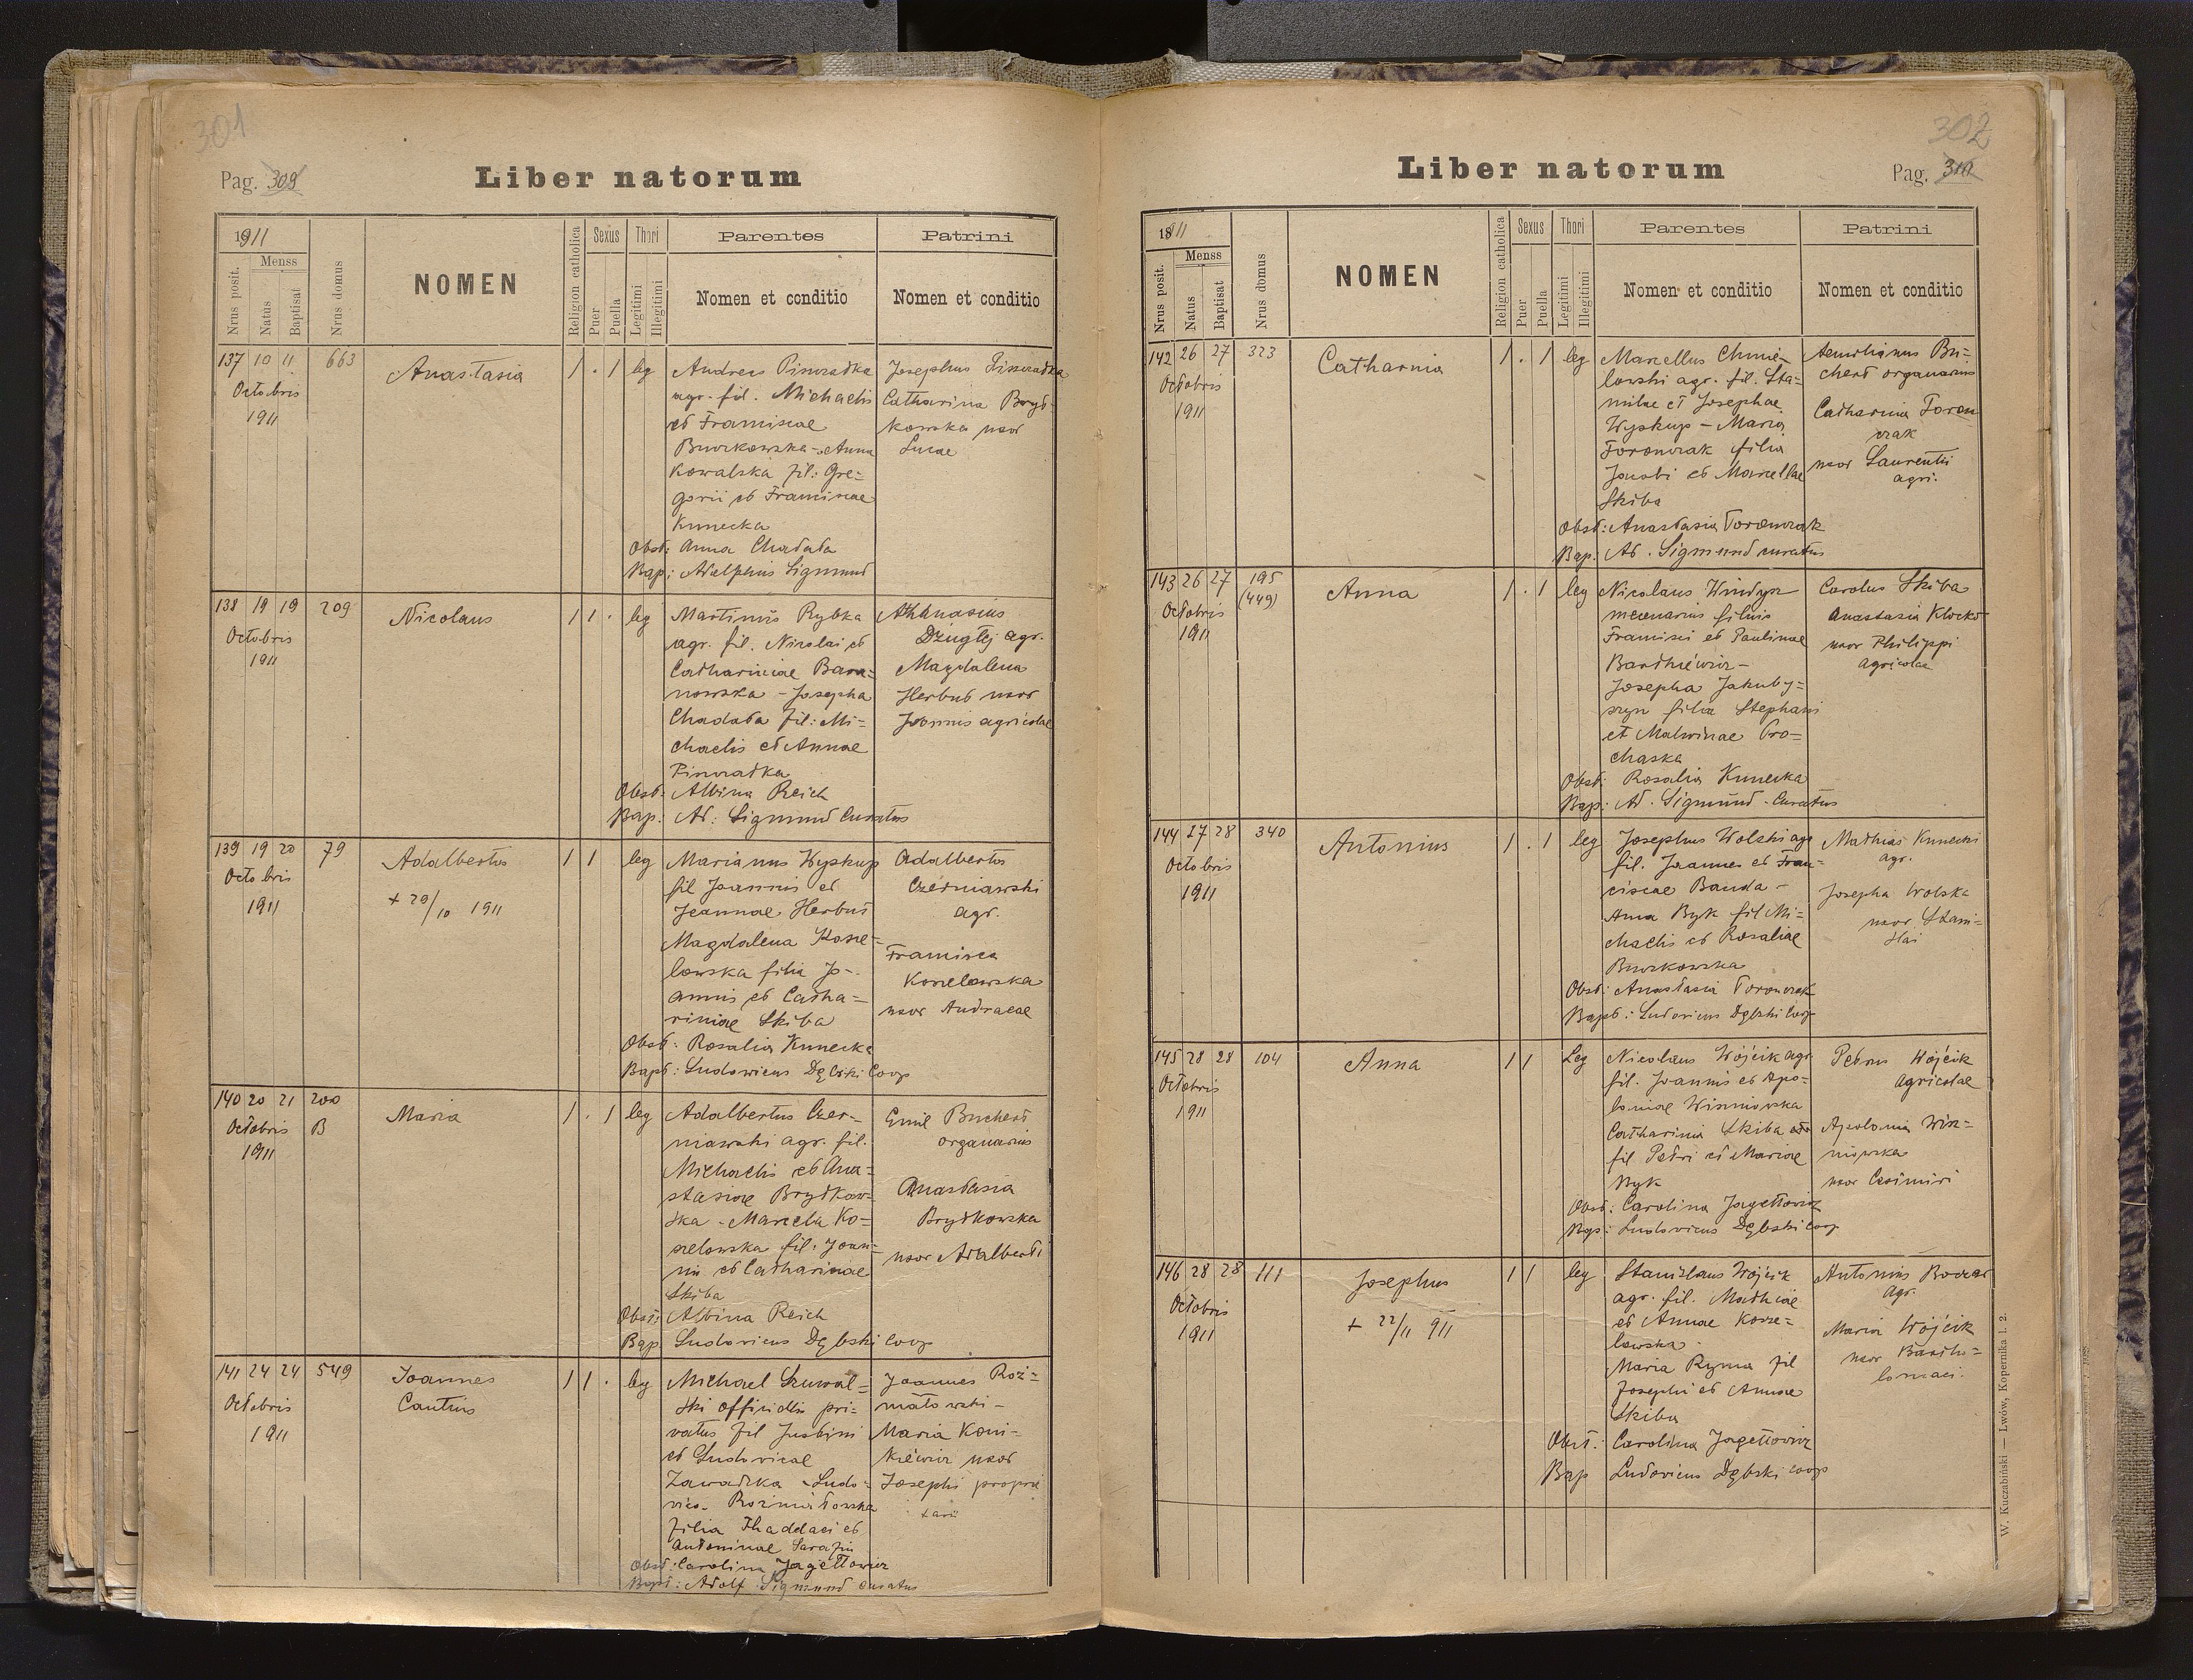 301
Pag. 309
Liber natorum
1911
Menss
Nrus posit.
Natus
Baptisat
Nrus domus
NOMEN
Religion catholica
Sexus
Puer
Puella
Thori
Legitimi
Illegitimi
Parentes
Nomen et conditio
Patrini
Nomen et conditio
137 10 11 663
Octobris
1911
Anastasia
1 . 1 leg
Andreas Pinoradka
agr. fil. Michaelis
et Franciscae
Kowalska fil: Gre=
gorii et Franciscae
Kunecka
Obst: Anna Chadada
Bap: Adolphus Sigmund
Josephus
Catharina Bryd-
kowska uxor
Lucae
138 19 19 209
Octobris
1911
Nicolaus
1 1 . leg
Martinus Rybka
agr. fil. Nicolai et
Catharinae Bara=
nowska - Josepha
Chadada fil: Mi=
chaelis et Annae
Obst: Albina Reich
Bap: Ad: Sigmund Curatus
Athanasius
agr.
Magdalena
Herbut uxor
Joannis agricolae
139 19 20 79
Octobris
1911
Adalbertus
+ 29/10 1911
1 1 leg
Marianus Wyskup
fil Joannis et
Joannae Herbut
Magdalena Kosze=
lowska filia Jo-
annis et Catha=
rinae Skiba
Obst: Rosalia Kunecka
Bapt: Ludovicus Dębski Coop
Adalbertus
Czerniawski
agr.
Francisca
Koszelowska
uxor Andreae
140 20 21 200
Octobris B
1911
Maria
1 . 1 leg
Adalbertus Czer-
niawski agr. fil.
Michaelis et Ana=
stasiae Brydkow=
ska - Marcella Ko=
szelowska fil. Joan=
nis et Catharinae
Skiba
Obst: Albina Reich
Bap Ludovicus Dębski Coop
Emil Buchert
organarius
Anastasia
Brydkowska
uxor Adalberti
141 24 24 549
Octobris
1911
Joannes
Cantius
1 1 . leg
Michael Szuwal=
ski officialis pri=
vatus fil Justini
et Ludovicae
Zawadzka - Ludo=
vica Rozmiatowska
filia Thaddaei et
Antoninae Sarafin
Obst: Carolina Jagełłowicz
Bapt: Adolf Sigmund curatus
Joannes Roz=
Maria Koni=
kiewicz uxor
Josephi proprie
tarii
302
Liber natorum
Pag. 310
1811
Menss
Nrus posit.
Natus
Baptisat
Nrus domus
NOMEN
Religion catholica
Sexus
Puer
Puella
Thori
Legitimi
Illegitimi
Parentes
Nomen et conditio
Patrini
Nomen et conditio
142 26 27 323
Octobris
1911
Catharnia
1 . 1 leg
Marcellus Chmie-
lowski agr. fil. Sta=
nislae et Josephae
Wyskup - Maria
Toronczak filia
Jacobi et Marcellae
Skiba
Obst: Anastasia Toronczak
Bap: Ad. Sigmund curatus
Aemilianus Bu=
chert organarius
Catharina Toron
czak
uxor Laurentii
agri.
143 26 27 195
(449)
Octobris
1911
Anna
1 . 1 leg
Nicolaus Windyk
filius
Francisci et Paulinae
Bartkiewicz -
Josepha Jakuby=
szyn filia Stephani
et Malwinae Pro=
chaska
Obst: Rosalia Kunecka
Bap: Ad. Sigmund - Curatus
Carolus Skiba
Anastasia Klocko
uxor Philippi
agricolae
144 27 28 340
Octobris
1911
Antonius
1 . 1 leg
Josephus Wolski agr
fil. Joannes et Fran=
ciscae Banda -
Anna Byk fil Mi=
chaelis et Rosaliae
Obst: Anastasia Toronczak
Bapt: Ludovicus Dębski Coop
Mathias Kunecki
agr.
Josepha Wolska
uxor Stani=
slai
145 28 28 104
Octobris
1911
Anna
1 1 Leg
Nicolaus Wójcik agr
fil. Joannis et Apo=
loniae Wiszniowska
Catharina Skiba
fil Petri et Mariae
Byk
Obst: Carolina Jagełłowicz
Bap: Ludovicus Dębski Coop
Petrus Wójcik
Agricolae
Apolonia Wisz=
niowska
uxor Casimiri
146 28 28 111
Octobris
1911
Josephus
+ 22/11 911
1 1 leg
Stanislaus Wójcik
agr. fil. Mathiae
et Annae Kosze=
lowska -
Maria Ryma fil
Josephi et Annae
Skiba
Obst: Carolina Jagełłowicz
Bap Ludovicus Dębski coop
Antonius
agr.
Maria Wójcik
uxor Bartho=
lomaei.
W. Kuczabiński — Lwów, Kopernika l. 2.